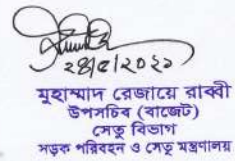 ২৪/৫/২০২১
মুহাম্মাদ রেজায়ে রাব্বী
উপসচিব (বাজেট)
সেতু বিভাগ
সড়ক পরিবহন ও সেতু মন্ত্রণালয়